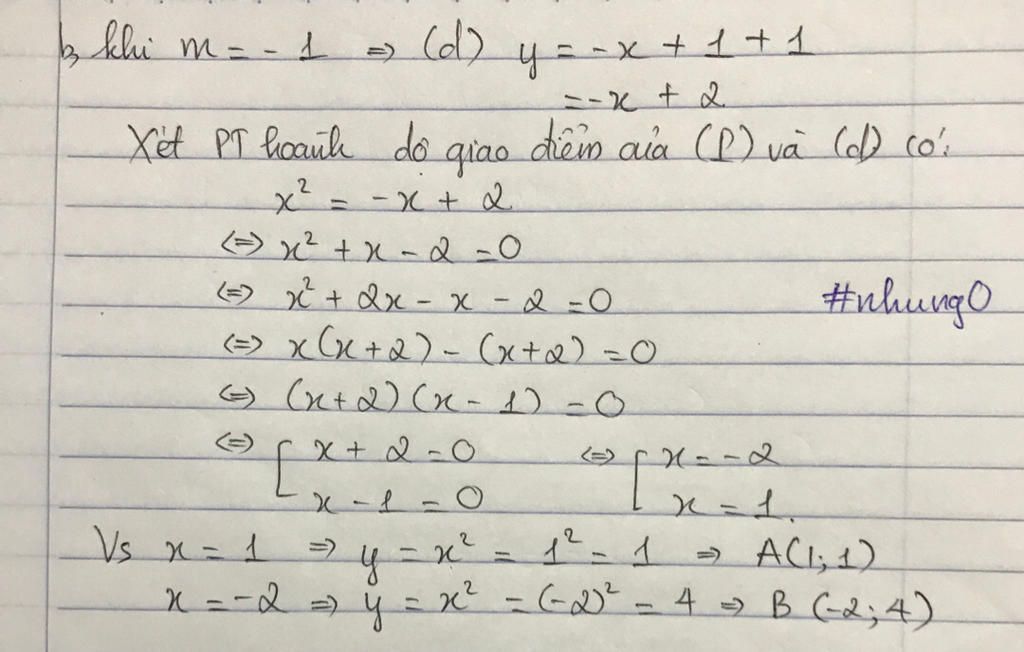 b, khi m = - 1 => (d) y = -x + 1 + 1
= -x + 2
Xét PT hoành độ giao điểm của (P) và (d) có:
x² = -x + 2
<=> x² + x - 2 = 0
<=> x² + 2x - x - 2 = 0
#nhung0
<=> x(x+2) - (x+2) = 0
<=> (x+2)(x - 1) = 0
<=> [ x + 2 = 0 <=> [ x = -2
x - 1 = 0 x = 1.
Vs x = 1 => y = x² = 1² = 1 => A(1; 1)
x = -2 => y = x² = (-2)² = 4 => B (-2; 4)